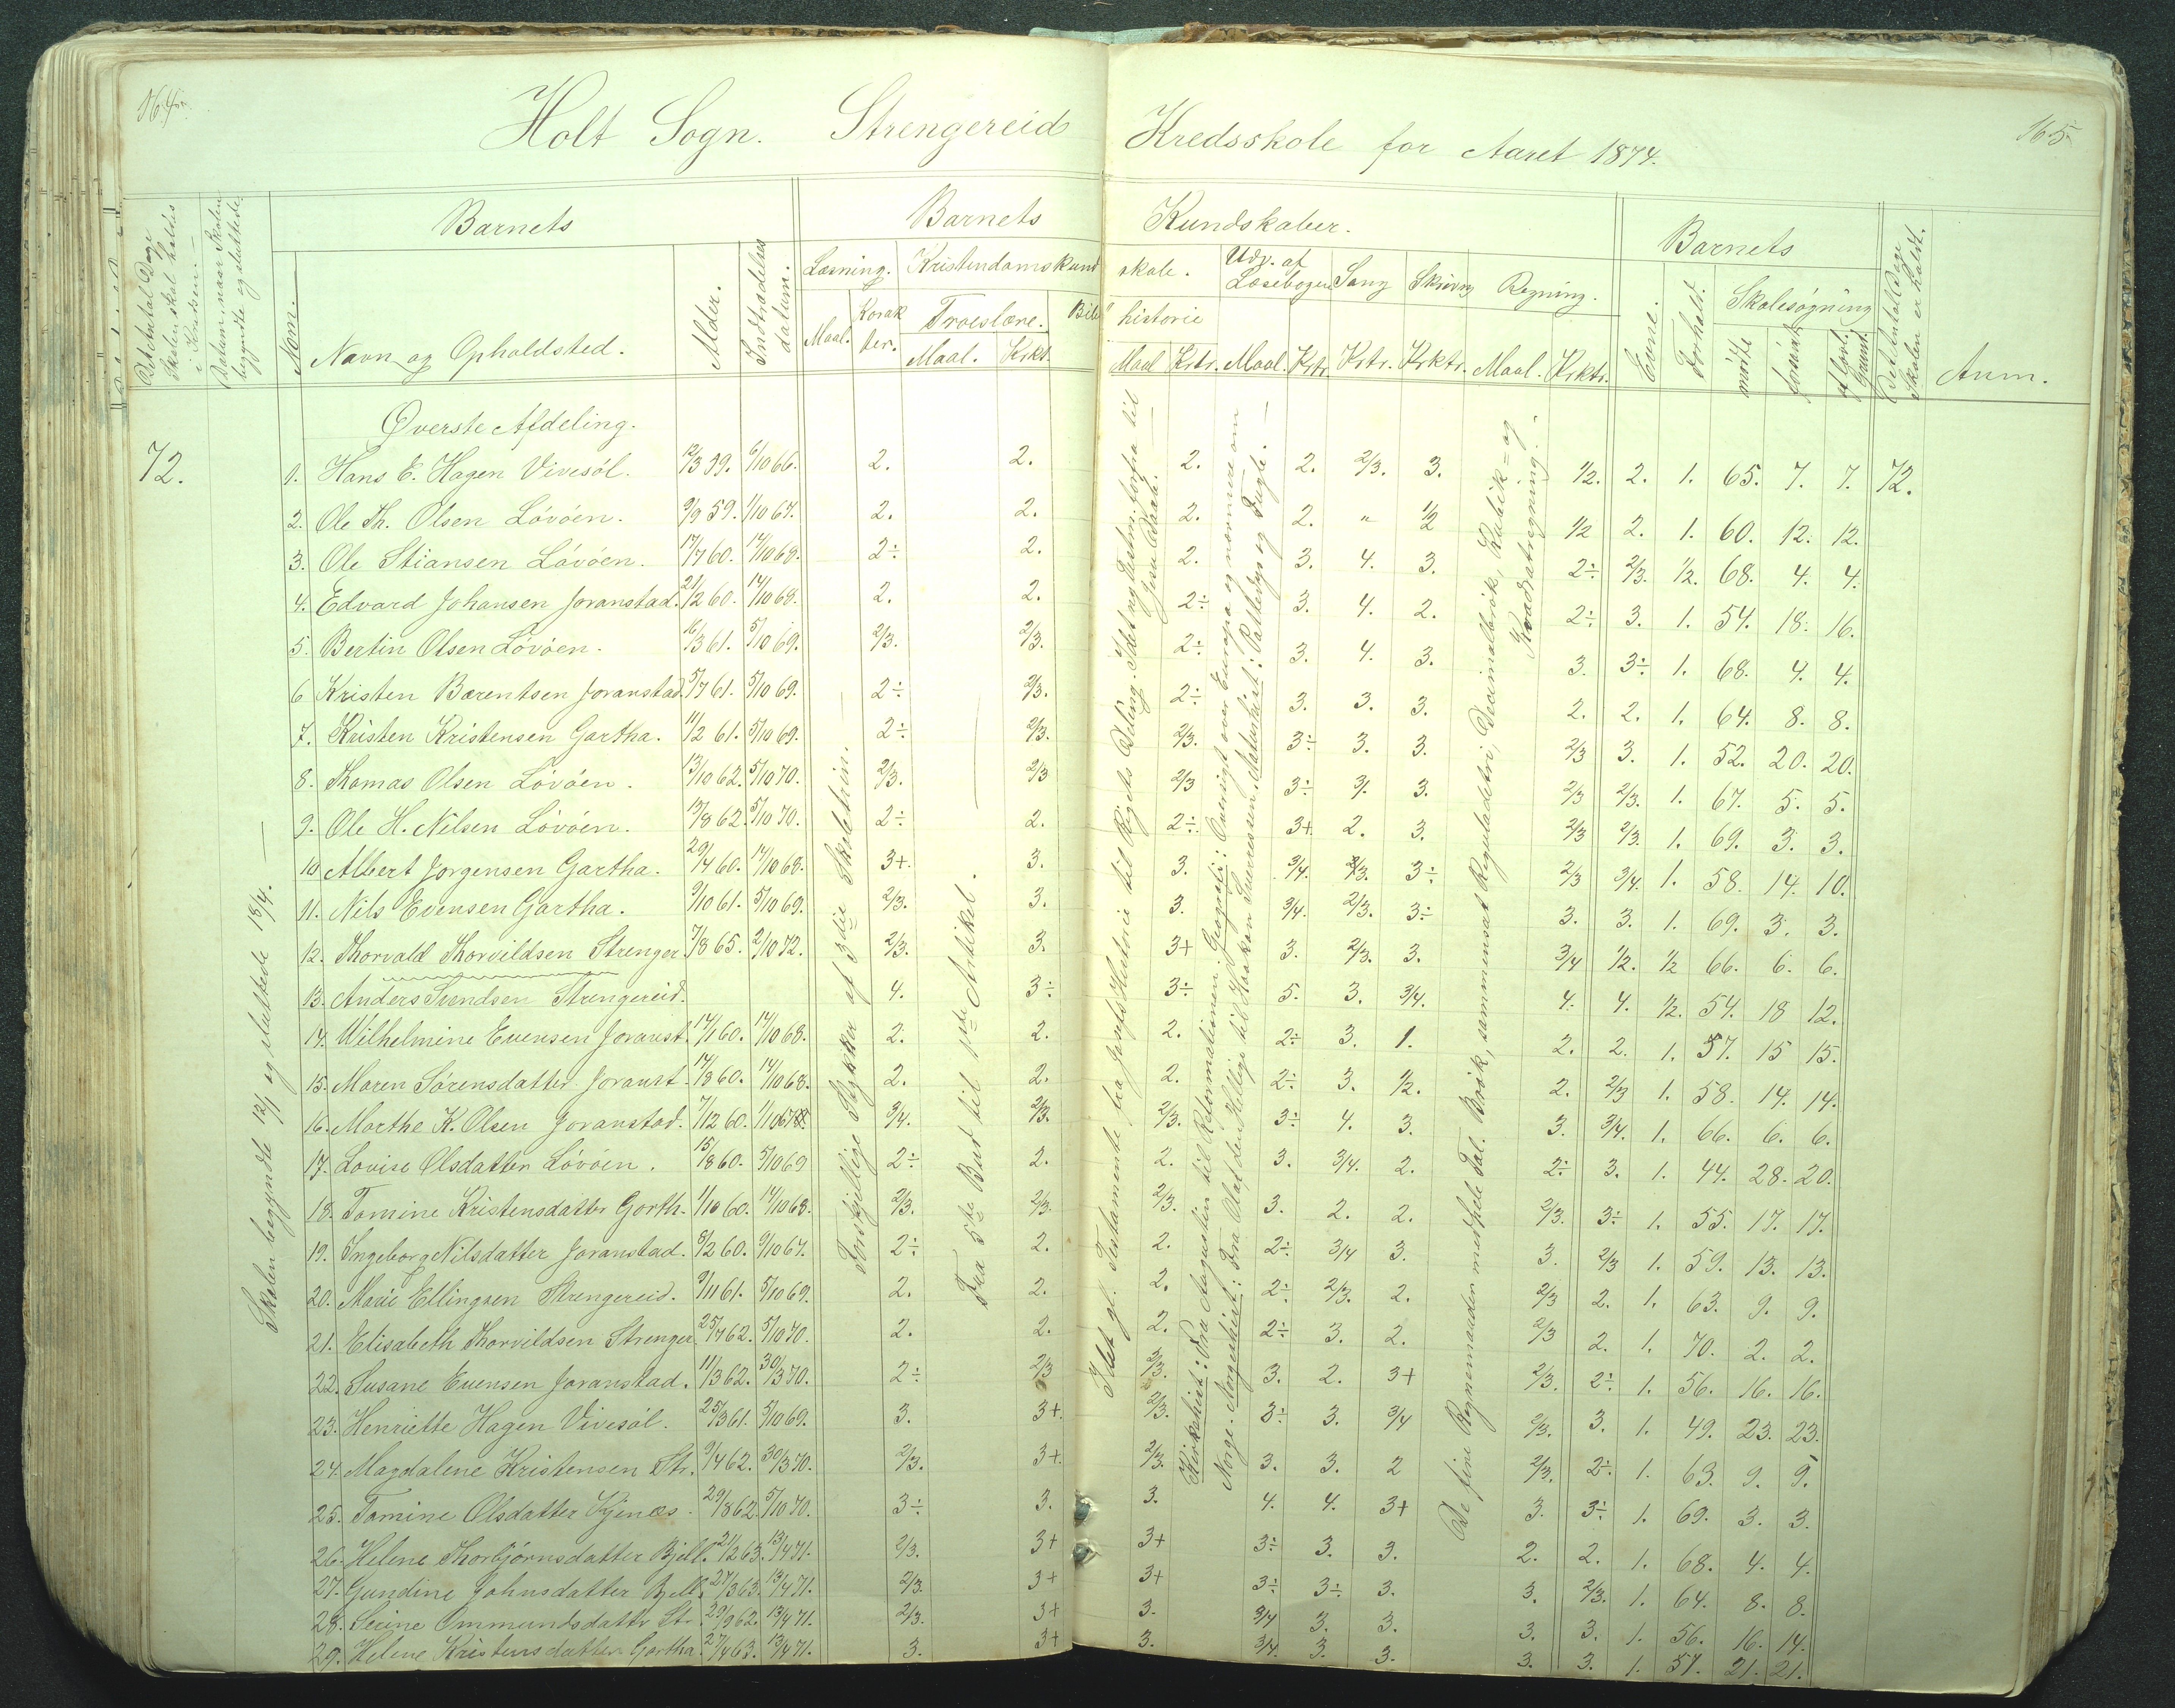 164.
165
Holt Sogn. Strengereid Kredsskole for Aaret 1874.
Det Antal Dage Skolen skal holdes i Kredsen.
Datum, naar Skolen begyndte og sluttede
Barnets
Barnets Kundskaber.
Barnets
Det Antal Dage Skolen er holdt.
Anm.
Num. Navn og Opholdsted. Alder. Indtrædelses datum.
Læsning. Kristendomskund skab. Udv. af Læsebogen Sang Skrivng Regning.
Evne. Forhold. Skolesøgning
Maal. Karak ter. Troeslære. Bibl historie
Maal. Krkt. Maal Krktr. Maal. Krktr. Krktr. Krktr. Maal. Krktr. mødte forsømt af Lovl. Grund.
Øverste Afdeling.
72. 1. Hans E. Hagen Vivesöl. 12/3 59. 6/10 66. 2. 2. 2. 2. 2/3. 3. 1/2. 2. 1. 65. 7. 7. 72.
2. Ole Th. Olsen Lövöen. 9/9 59. 1/10 67. 2. 2. 2. 2. " 1/2 1/2 2. 1. 60. 12. 12.
3. Ole Stiansen Lövöen. 17/7 60. 14/10 68. 2÷ 2. 2. 3. 4. 3. 2÷ 2/3. 1/2. 68. 4. 4.
4. Edvard Johansen Joranstad. 21/2 60. 14/10 68. 2. 2. 2÷ 3. 4. 2. 2÷ 3. 1. 54. 18. 16.
5. Bertin Olsen Lövöen. 16/3 61. 5/10 69. 2/3. 2/3. 2÷ 3. 4. 3. 3. 3÷ 1. 68. 4. 4.
6 Kristen Barentsen Joranstad. 5/7 61. 5/10 69. 2÷ 2/3. 2÷ 3. 3. 3. 2. 2. 1. 64. 8. 8.
7. Kristen Kristensen Gartha. 11/2 61. 5/10 69. 2÷ 2/3. 2/3. 3÷ 3. 3. 2/3 3. 1. 52. 20. 20.
8. Thomas Olsen Lövöen. 13/10 62. 5/10 70. 2/3. 2/3 2/3 3÷ 3. 3. 2/3 2/3. 1. 67. 5. 5.
9. Ole H. Nilsen Lövöen. 19/8 62. 5/10 70. 2÷ 2. 2÷ 3+ 2. 3. 2/3 2/3. 1. 69. 3. 3.
10 Albert Jorgensen Gartha. 29/4 60. 14/10 68. 3+. 3. 3. 3/4. 2/3. 3÷ 2/3 3/4. 1. 58. 14. 10.
11. Nils Evensen Gartha. 9/10 61. 5/10 69. 2/3. 3. 3. 3/4. 2/3. 3÷ 3. 3. 1. 69. 3. 3.
12. Thorvald Thorvildsen Strenger. 7/8 65. 2/10 72. 2/3. 3. 3+ 3. 2/3. 3. 3/4 1/2. 1/2 66. 6. 6.
13. Anders Svendsen Strengereid. 4. 3÷ 3÷ 5. 3. 3/4. 4. 4. 1/2. 54. 18 12.
14. Wilhelmine Evensen Joranst. 14/1 60. 14/10 68. 2. 2. 2. 2÷ 3. 1. 2. 2. 1. 57. 15 15.
15. Maren Sörensdatter Joranst. 14/8 60. 14/10 68. 2. 2. 2. 2÷ 3. 1/2. 2. 2/3 1. 58. 14. 14.
16. Marthe K. Olsen Joranstad. 7/12 60. 1/10 67 3/4. 2/3. 2/3. 3÷ 4. 3. 3. 3/4. 1. 66. 6. 6.
17. Lovise Olsdatter Lövöen. 15/8 60. 5/10 69 2÷ 2. 2. 3. 3/4. 2. 2÷ 3. 1. 44. 28. 20.
18. Tomine Kristensdatter Gorth. 1/10 60. 14/10 68. 2/3. 2/3. 2/3. 3. 2. 2. 2/3. 3÷ 1. 55. 17. 17.
19. Ingeborg Nilsdatter Joranstad. 8/2 60. 9/10 67. 2÷ 2. 2. 2÷ 3/4 3. 3. 2/3 1. 59. 13. 13.
20. Marie Ellingsen Strengereid. 9/11 61. 5/10 69. 2. 2. 2. 2÷ 2/3. 2. 2/3 2. 1. 63. 9. 9.
21. Elisabeth Thorvildsen Strenger. 25/7 62. 5/10 70. 2. 2. 2. 2÷ 3. 2. 2/3 2. 1. 70. 2. 2.
22. Susane Evensen Joranstad. 11/3 62. 30/3 70. 2÷ 2/3 2/3. 3. 2. 3+ 2/3. 2÷ 1. 56. 16. 16.
23. Henriette Hagen Vivesöl. 25/3 61. 5/10 69. 3. 3+. 2/3. 3÷ 3. 3/4 2/3. 3. 1. 49. 23. 23.
24. Magdalene Kristensen Str. 9/4 62. 30/3 70. 2/3. 3+. 2/3. 3. 3. 2 2/3. 2÷ 1. 63. 9. 9.
25. Tomine Olsdatter Kjenæs. 29/8 62. 5/10 70. 3÷ 3. 3. 4. 4. 3+ 3. 3÷ 1. 69. 3. 3.
26. Helene Thorbjörnsdatter Bjell. 21/2 63. 13/4 71. 2/3. 3+ 3+ 3÷ 3. 3. 2. 2. 1. 68. 4. 4.
27. Gundine Johnsdatter Bjell. 27/3 63. 13/4 71. 2/3. 3+ 3+ 3÷ 3÷ 3. 3. 2/3. 1. 64. 8. 8.
28. Serine Ommundsdatter St. 29/9 62. 13/4 71. 2/3. 3+ 3. 3/4 3. 3. 3. 3. 1. 56. 16. 14.
29. Helene Kristensdatter Gartha. 27/4 63. 13/4 71. 3. 3+ 3. 3/4. 3. 3. 3. 3. 1. 51. 21. 21.
Skolen begyndte 12/1 og sluttede 18/4.
Forskjellige Stykker af 3die Skoletrin.
Fra 5te Bud til 1ste Artikel.
I det gl. Testamente fra Josefs Historie til Rigets Deling. I det ny Testm. forfra til Jesu Daab.
Kirkehist: Fra Augustin til Reformationen. Geografi: Oversigt over Europa og nærmere om
Norge. Norgeshist: Fra Olaf den Hellige til Haakon Sverressen. Naturhist: Pattedyr og Fugle.
De fire Regnemaader med hele Tal. Brök, sammensat Reguladetri, Decimalbrök, Kubik- og
Kvadratregning.